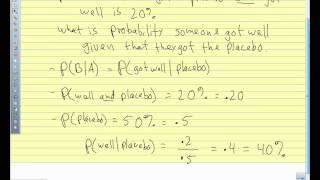 well is 20%.
what is probability someone got well
given that they got the placebo.
- P(B|A) = P(got well | placebo)
- P(well and placebo) = 20% = .20
- P(placebo) = 50% = .5
P(well | placebo) = .2 / .5 = .4 = 40%